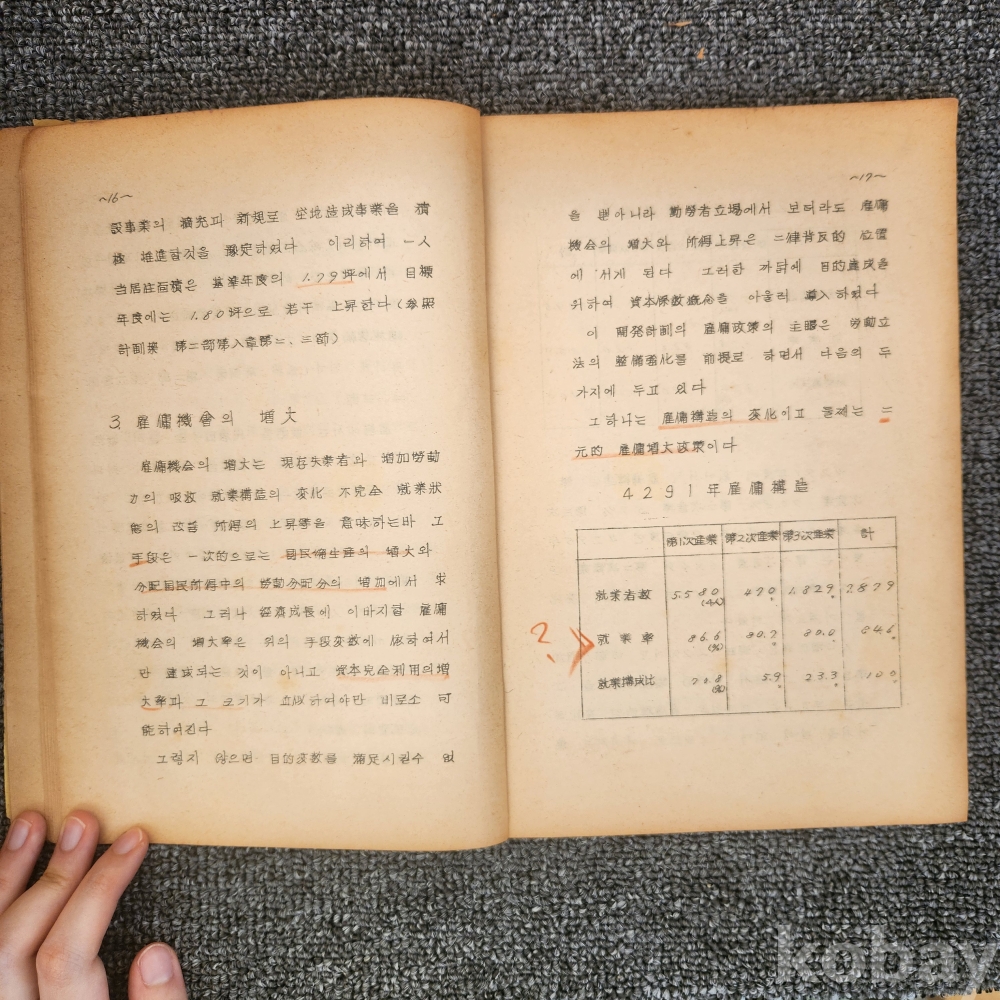 ~16~
設事業의 擴充과 新規로 垈地造成事業을 積
極 推進할것을 豫定하였다 이리하여 一人
当居住面積은 基準年度의 1.79坪에서 目標
年度에는 1.80坪으로 若干 上昇한다(参照
計画案 第二部第八章第二、三節)
3. 雇傭機會의 増大
雇傭機会의 増大는 現存失業者와 増加勞動
力의 吸收 就業構造의 変化 不完全 就業状
態의 改善 所得의 上昇等을 意味하는바 그
手段은 一次的으로는 国民総生産의 増大와
分配国民所得中의 勞動分配分의 増加에서 求
하였다 그러나 経済成長에 이바지할 雇傭
機会의 増大率은 위의 手段変数에 依하여서
만 達成되는 것이 아니고 資本完全利用의増
大率과 그 크기가 하여야만 비로소 可
能하여진다
그렇지 않으면 目的変数를 滿足시킬수 없
~17~
을 뿐아니라 勤勞者立場에서 보더라도 雇傭
機会의 増大와 所得上昇은 二律背反的 位置
에 서게 된다 그러한 까닭에 目的達成을
위하여 資本係数概念을 아울러 導入하였다
이 開発計劃의 雇傭政策의 主眼은 勞動立
法의 整備強化를 前提로 하면서 다음의 두
가지에 두고 있다
그하나는 雇傭構造의 変化이고 둘째는 二
元的 雇傭増大政策이다
4291年雇傭構造
第1次産業 第2次産業 第3次産業 計
就業者数 5.580(千人) 470 1.829 7.879
?
就業率 86.6(%) 80.7 80.0 84.6
就業構成比 70.8(%) 5.9 23.3 100
kobay